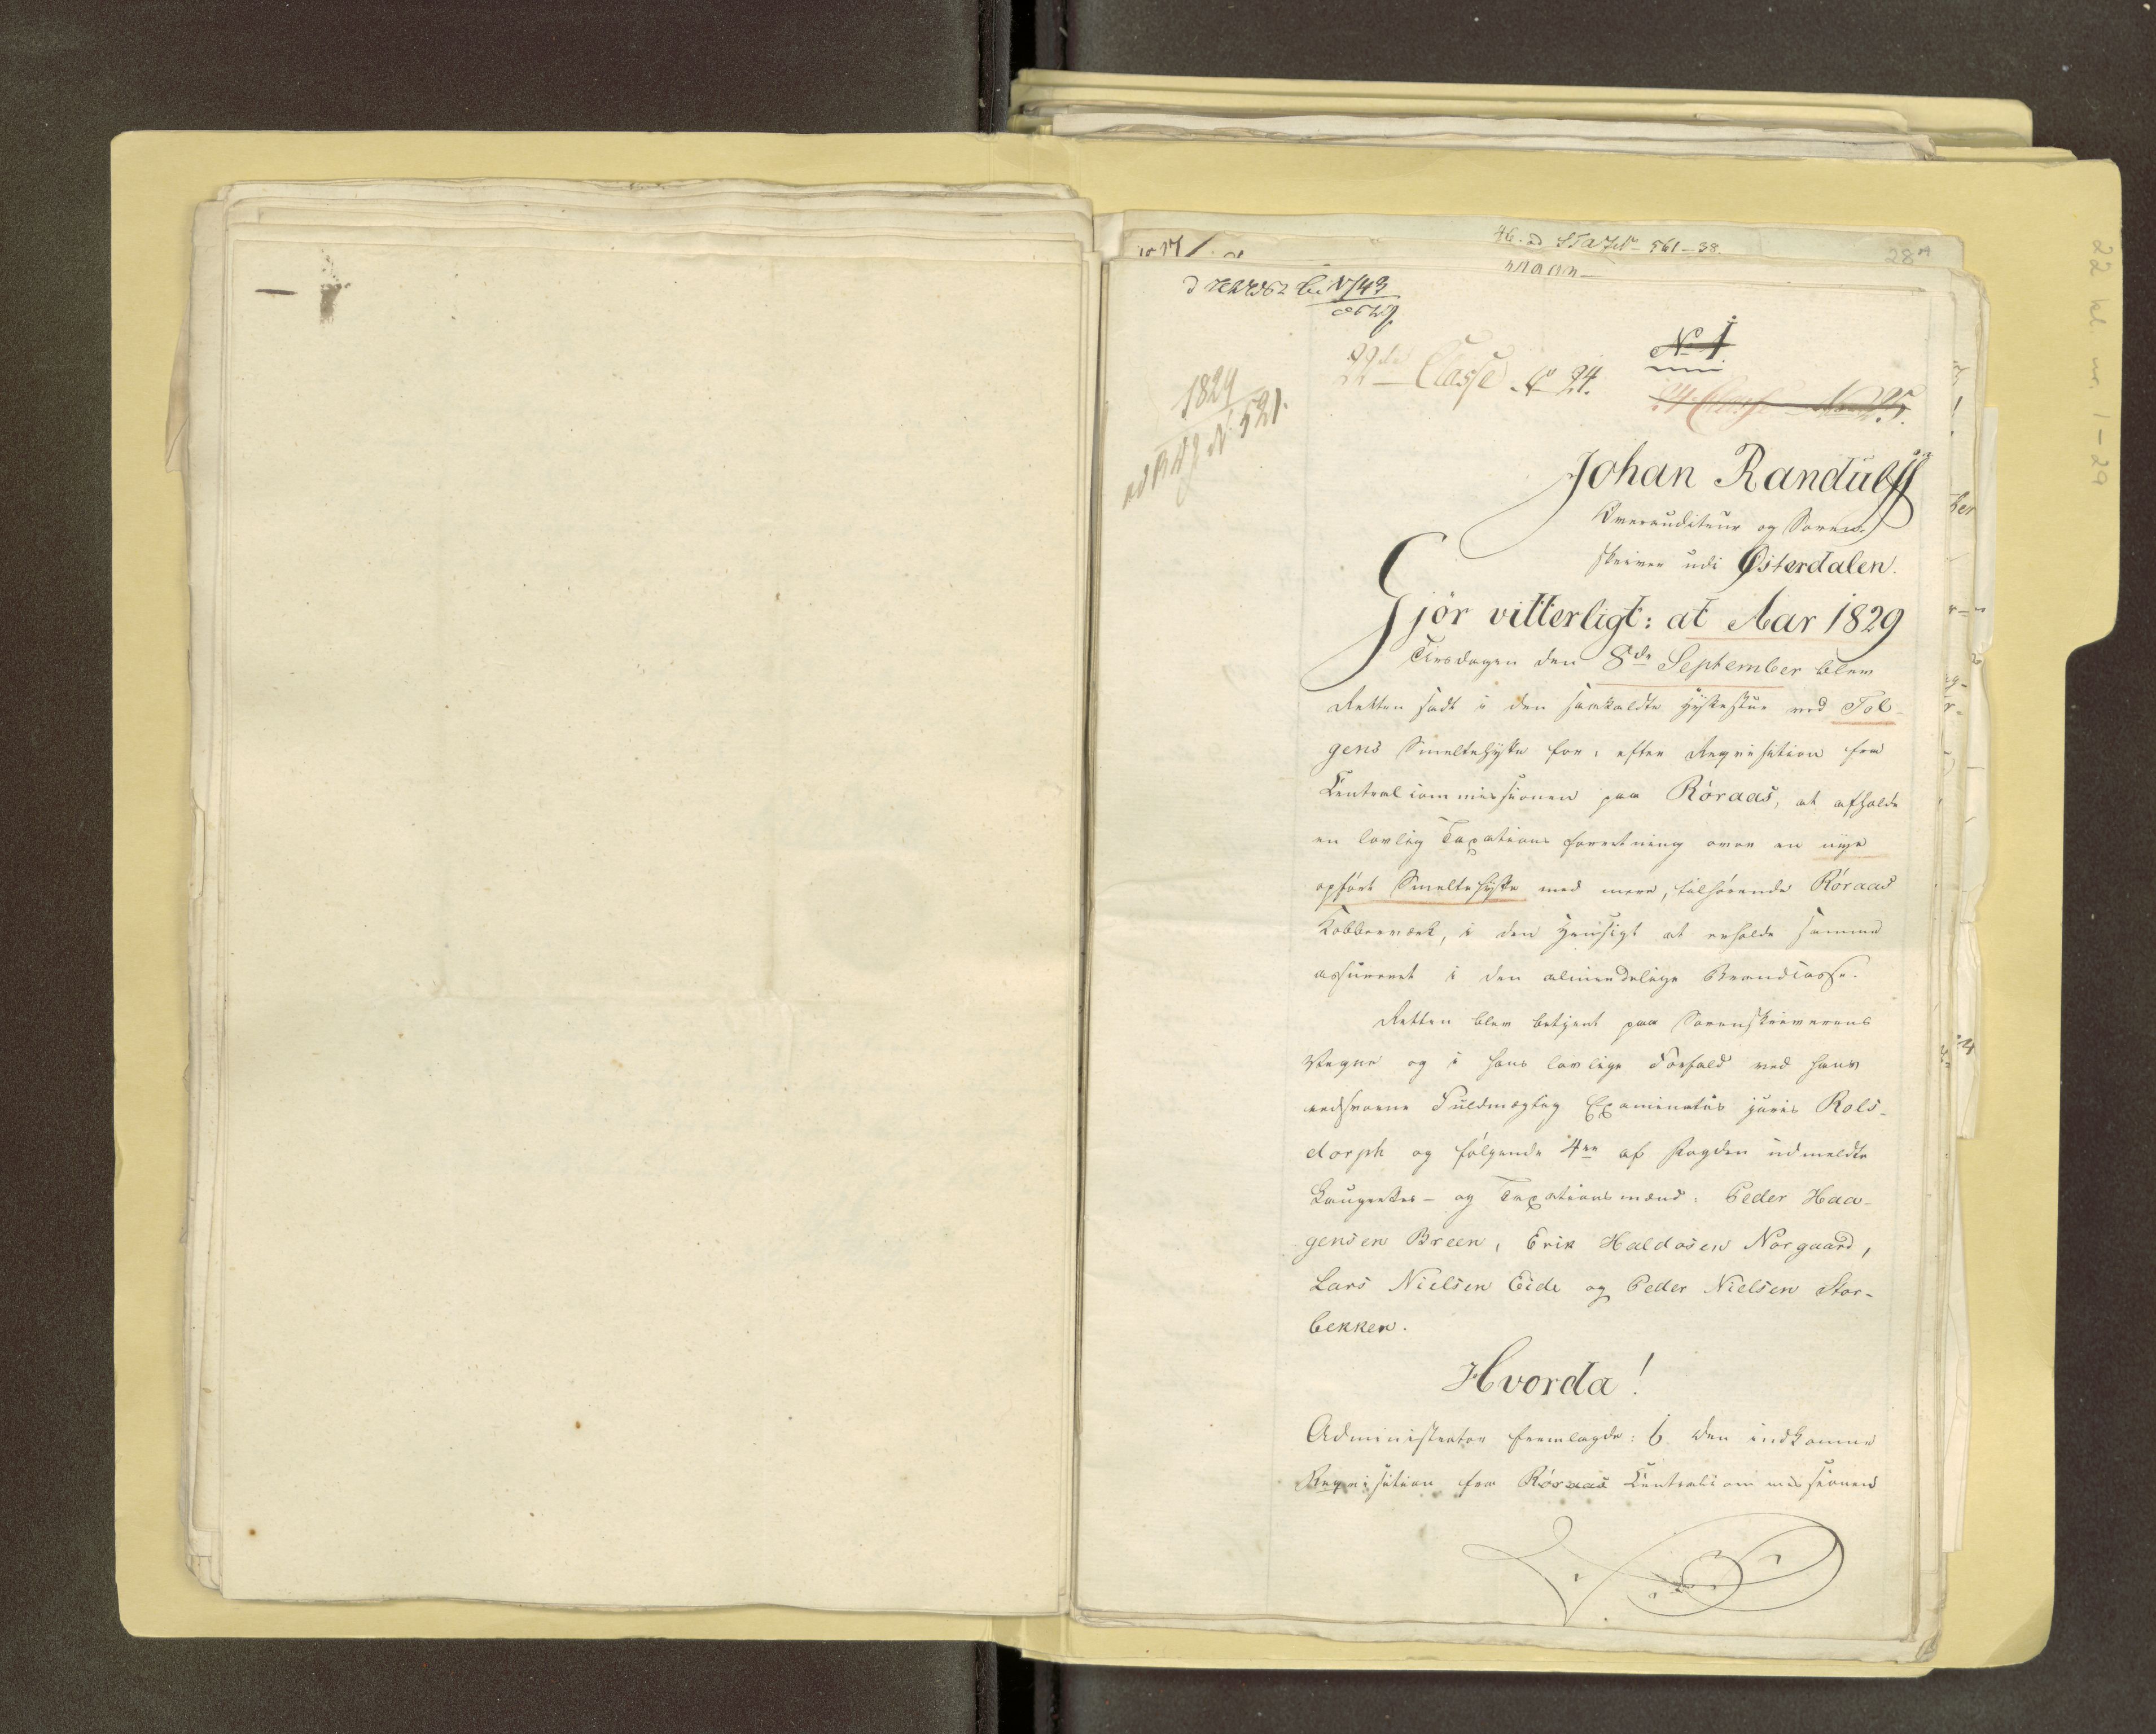 46. ad 561-38.
28 A
22 kl. nr. 1-29
N 743
1829
ad N. 521.
22de Classe No 24.
No 1
No 25.
Johan Randulff
Overauditeur og Soren-
skriver udi Østerdalen.
Gjör vitterligt: at Aar 1829
Tirsdagen den 8de September blev
Retten sadt i den saakaldte Hyttestue ved Tol-
gens Smeltehytte for, efter Requisition fra
Centralcommissionen paa Röraas, at afholde
en lovlig Taxations forretning over en nye
opfört Smeltehytte med mere, tilhörende Röraas
Kobberværk, i den Hensigt at erholde samme
assureret i den almindelige Brandcasse.
Retten blev betjent paa Sorenskriverens
Vegne og i hans lovlige Forfald ved hans
edsvorne Fuldmægtig Examinatus juris Rols-
dorph og fölgende 4re af Fogden udmeldte
Laugrettes- og Taxationsmænd: Peder Haa-
gensen Breen, Erik Haldosen Norgaard,
Lars Nielsen Eide og Peder Nielsen Stor-
bekken.
Hvorda!
Administrator fremlagde: 6. den indkomne
Requisition fra Röraas Centralcommissionen